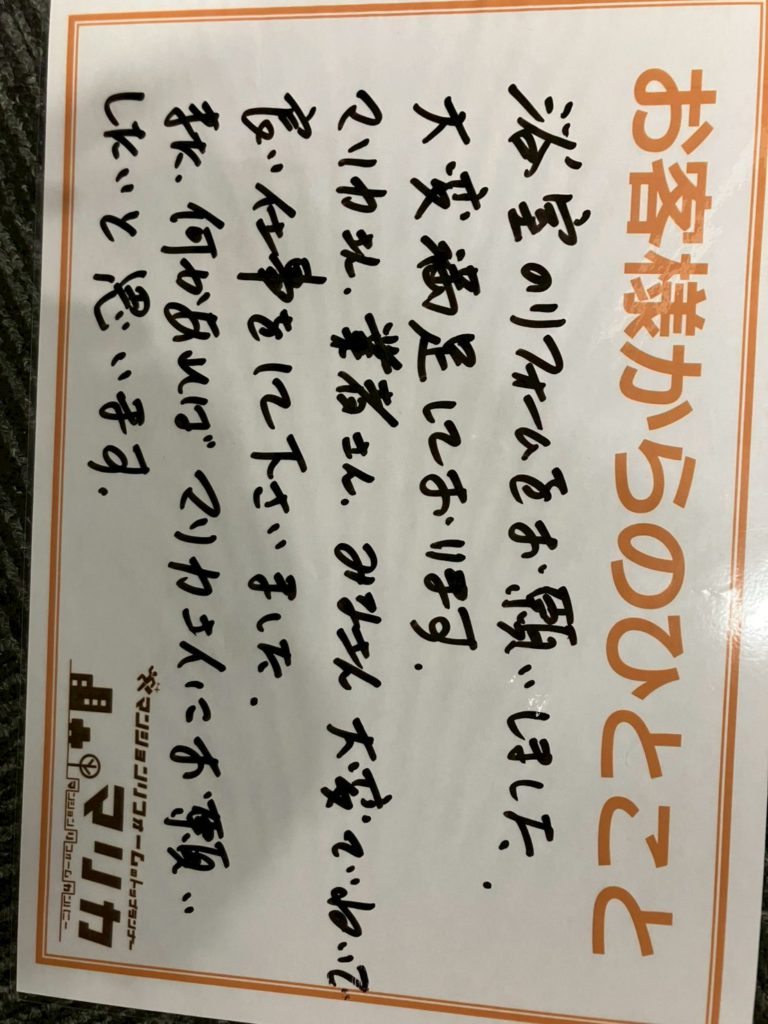 お客様からのひとこと
浴室のリフォームをお願いしました.
大変満足しております.
マリカさん、業者さん、みなさん大変ていねいで
良い仕事をして下さいました.
また、何かあればマリカさんにお願い
したいと思います.
マンションリフォームのトップランナー
マリカ
マンションリフォームカンパニー